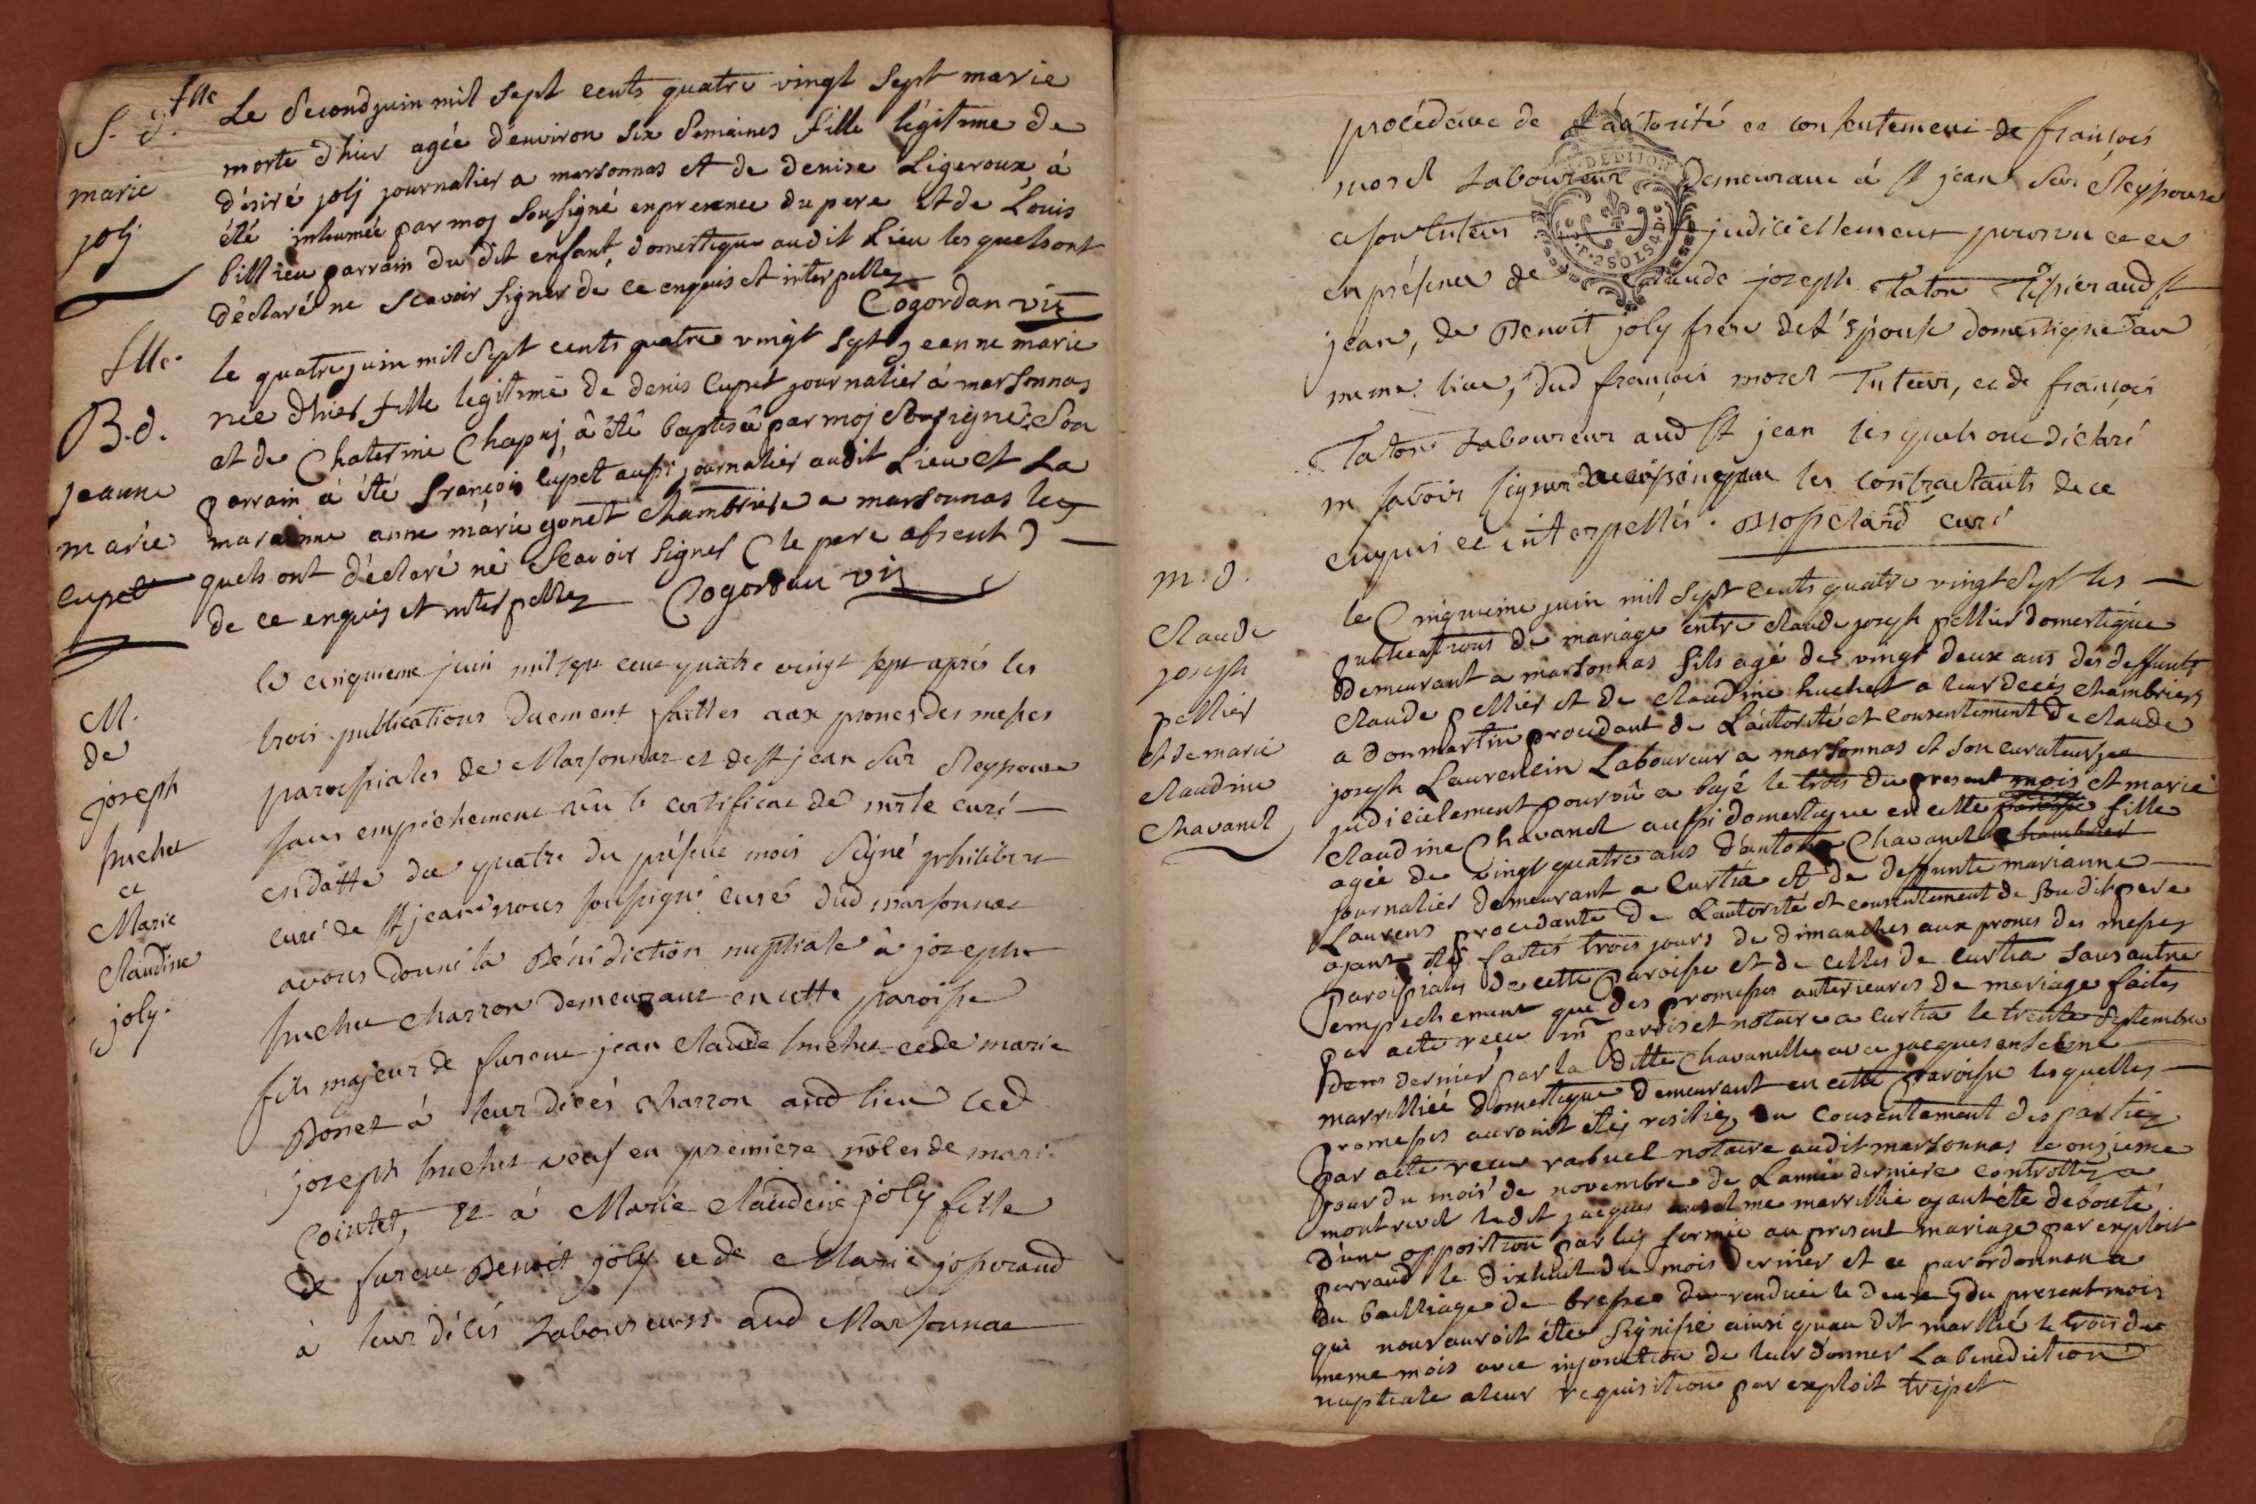 fille
S. d.
marie
joly
Le second juin mil sept cents quatre vingt sept marie
morte d'hier agée d'environ six semaines fille légitime de
désiré joly journalier a marsonnas et de denise Ligeroux à
été inhumée par moy sousigné en presence du pere et de Louis
billieu parrain du dit enfant, domestique audit Lieu les quels ont
déclaré ne scavoir signer de ce enquis et interpellez
Cogordan vic
fille
B. d.
jeanne
marie
cupet
le quatre juin mil sept cents quatre vingt sept jeanne marie
née d'hier fille legitime de denis Cupet journalier à marsonnas
et de Chaterine Chapuj, à été baptisé par moj sousigné. Son
parrain à été françois cupet aussi journalier audit Lieu et La
maraine anne marie gonet chambriere a marsonnas les
quels ont déclaré ne scavoir signer (le pere absent)
de ce enquis et interpellez Cogordan vic
M.
de
joseph
huchet
et
Marie
Claudine
joly.
le cinquieme juin mil sept cent quatre vingt sept après les
trois publications duement faittes aux prones des messes
paroissiales de Marsonnaz et de st jean sur Reyssouze
sans empéchement vû le certificat de mr le curé
en datte du quatre du présent mois signé philibert
curé de st jean nous soussigné curé dud marsonnaz
avons donné la Bénédiction nuptiale à joseph
huchet charron demeurant en cette paroisse
fils majeur de furent jean Claude huchet et de marie
Donet à leur décés charron aud lieu led
joseph huchet veuf en premiere nôles de mari
Cointet, et à Marie Claudine joly fille
de furent Benoit joly et de Marie josserand
à leur décés Laboureurs aud Marsonnaz
procédante de l'autorité et consentement de françois
morel Laboureur demeurant à st jean sur Reyssouze
a son tuteur judiciellement pourvu et en
en présence de Claude joseph Taton Tissier aud st
jean, de Benoit joly frère de l'épouse domestique au
meme lieu, dud françois morel Tuteur, et de françois
Taton Laboureur aud st jean lesquels ont déclaré
ne savoir signer les contractants de ce
enquis et interpellés. curé
m. d.
Claude
joseph
pellier
et de marie
claudine
Chavanel
le Cinquieme juin mil sept cents quatre vingt sept les
publications de mariage entre claude joseph pellier domestique
demeurant a marsonnas fils agé de vingt deux ans des deffunts
Claude pellier et de claudine huchet a leur decés chambriers
a donmartin procedant de L'autorité et consentement de claude
joseph Laurencin Laboureur a marsonnas et son curateur
judicielement pourvû a bagé le trois du present mois et marie
claudine Chavanel aussi domestique en cette paroisse fille
agée de vingt quatre ans d'antoine Chavanel chambrier
journalier demeurant a Curtia et de deffunte marianne
Laurens procedante de L'autorité et consentement de son dit pere
ayant été faites trois jours de dimanches aux prones des messes
paroissiales de cette Paroisse et de celles de curtia sans autre
empechement que des promesses anterieures de mariage faites
par acte recu mr et notaire a curtia le trente septembre
dern dernier par la ditte Chavanelle avec jacques anselme
marrillié domestique demeurant en cette Paroisse lesquelles
promesses auroint étés resiliez du consentement des partiez
par acte recu rabuel notaire audit marsonnas le onzieme
jour du mois de novembre de L'année derniere controllez a
montrevel ledit jacques anselme marrillié ayant été debouté
d'une opposition par luy formée au present mariage par exploit
perraud le dixhuit du mois dernier et ce par ordonnance
du bailliage de bresse du rendue le deux du present mois
qui nous auroit été signifié ainsi qu'au dit marillié le trois du
meme mois avec injonction de leur donner La benediction
nuptiale a leur requisition par exploit tripet